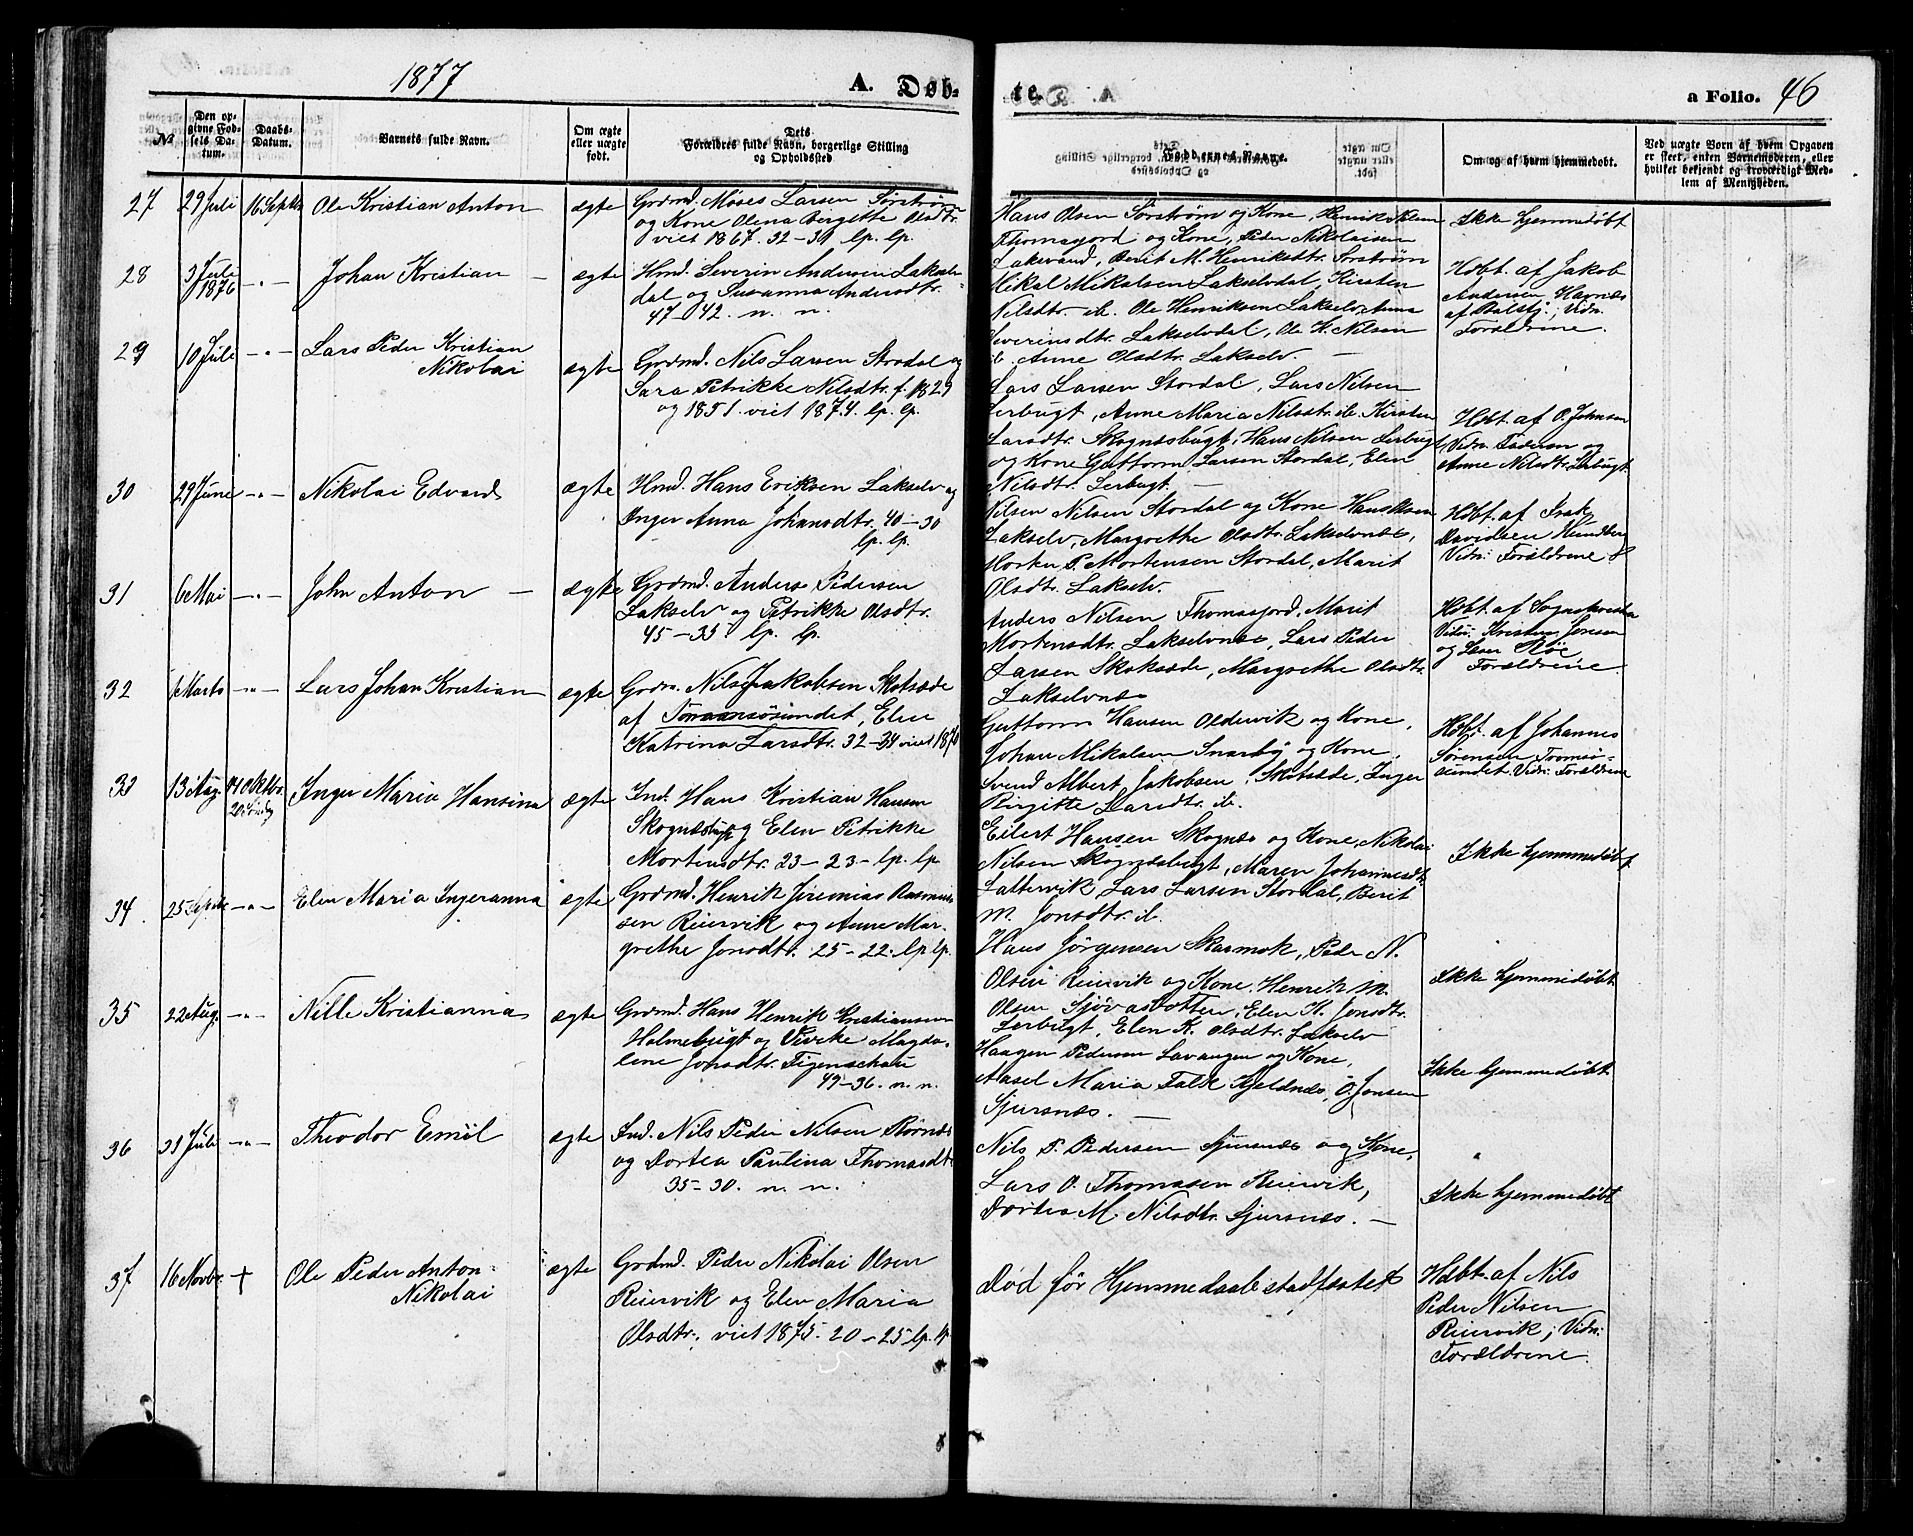 1877
A. Døb-
te.
a Folio. 46
No
Den op-
givne Fød-
sels Da-
tum.
Daabs-
Datum.
Barnets fulde Navn.
Om ægte
eller uægte
født.
Dets
Forældres fulde Navn, borgerlige Stilling
og Opholdssted
Faddernes Navne.
Om og af hvem hjemmedøbt.
Ved uægte Børn af hvem Opgaven
er skeet, enten Barnemoderen, eller
hvilket bekjendt og troværdigt Med-
lem af Menigheden.
27 29 Juli 16 Septbr Ole Kristian Anton ægte
Grdmd. Moses Larsen Sørstrøm
og Kone Olena Bergette Olsdtr.
viet 1867. 32-31 lp. lp.
Hans Olsen Sørstrøm og Kone, Henrik Klem
Thomasjord og Kone, Peder Nikolaisen
Lakevand, Berit M. Henriksdtr. Sørstrøm
Ikke hjemmedøbt
28 3 Juli
1876 -"- Johan Kristian - ægte
Hmd. Severin Andersen Lakselv-
dal og Susanna Andersdtr.
47-42. n. n.
Mikal Mikalsen Lakselvdal, Kirsten
Nilsdtr. ib. Ole Henriksen Lakselv, Anna
Severinsdtr. Lakselvdal, Ole H. Nilsen
ib. Anne Olsdtr. Lakselv. -
Hdbt. af Jakob
Andersen Havnæs
af Balsfj.; Vidn.
Forældrene.
29 10 Juli -"- Lars Peder Kristian
Nikolai ægte
Grdmd. Nils Larsen Stordal og
Sara Petrikke Nilsdtr. f. 1829
og 1851. viet 1874. lp. lp.
Lars Larsen Stordal, Lars Nilsen
Lerbugt, Anne Maria Nilsdtr. ib. Kirsten
Larsdtr. Skognæsbugt, Hans Nilsen Lerbugt
og Kone Guttorm Larsen Stordal, Elen
Nilsdtr. Lerbugt. -
Hdbt. af O. Johnsen
Vidn. Faderen og
Anne Nilsdtr. Lerbugt.
30 29 Juni -"- Nikolai Edvard ægte
Hmd. Hans Eriksen Lakselv og
Inger Anna Johansdtr. 40-30
lp. lp.
Nilsen Nilsen Stordal og Kone Hans Olsen
Lakselv, Margrethe Olsdtr. Lakselvnæs,
Morten P. Mortensen Stordal, Marit
Olsdtr. Lakselv.
Hdbt. af Isak
Davidsen
Vidn: Forældrene
31 6 Mai -"- John Anton - ægte
Grdmd. Anders Pedersen
Lakselv og Petrikke Olsdtr.
45-35 lp. lp.
Anders Nilsen Thomasjord, Marit
Mortensdtr. Lakselvnæs, Lars Peder
Larsen Skoksæde, Margrethe Olsdtr.
Lakselvnæs
Hdbt. af
Vidn: Kristen Jensen
og
Forældrene
32 Marts -"- Lars Johan Kristian ægte
Grdm. Nils Jakobsen Skotsæde
af Tromsøsundet, Elen
Katrina Larsdtr. 32-34 viet 1870
Guttorm Hansen Oldervik og Kone,
Johan Mikalsen Snarby og Kone,
Svend Albert Jakobsen, Skotsæde, Inger
Birgitte Larsdtr. ib.
Hdbt. af Johannes
Sørensen Tromsø-
sundet. Vidn: Forældrene
33 13 Aug. 14 Oktbr.
Inger Maria Hansina ægte
Ind. Hans Kristian Hansen
Skognæsbugt og Elen Petrikke
Mortensdtr. 23-23- lp. lp
Eilert Hansen Skognæs og Kone, Nikolai
Nilsen Skognæsbugt, Maren Johannesdtr.
Lattervik, Lars Larsen Stordal, Berit
M. Jonsdtr. ib.
Ikke hjemmedøbt
34 25 Septbr -"- Elen Maria Ingeranna ægte
Grdmd. Henrik Jeremias Rasmus-
sen Reiervik og Anne Mar-
grethe Jonsdtr. 25-22. lp. lp.
Hans Jørgensen Skarmok, Peder N.
Olsen Reiervik og Kone. Henrik M.
Olsen Sjøvasbotten, Elen K. Jonsdtr.
Lerbugt, Elen K. Olsdtr. Lakselv
Ikke hjemmedøbt
35 22 Aug. -"- Nille Kristianna ægte
Grdmd. Hans Henrik Kristiansen
Holmebugt og Vivike Magda-
lene Jonsdtr. Figenschau
49-36. n. n.
Haagen Pedersen Lavangen og Kone,
Aasel Maria Falk Kjeldnæs, O. Jensen
Sjursnæs. -
Ikke hjemmedøbt
36 31 Juli -"- Theodor Emil ægte
Ind. Nils Peder Nilsen Rørnæs
og Dortea Paulina Thomasdtr
35-30. n. n.
Nils P. Pedersen Sjursnæs og Kone,
Lars O. Thomasen Reiervik,
Dortea M. Nilsdtr. Sjursnæs. -
Ikke hjemmedøbt
37 16 Novbr. + Ole Peder Anton
Nikolai ægte
Grdmd. Peder Nikolai Olsen
Reiervik og Elen Maria
Olsdtr., viet 1875. 20-25 lp. lp
Død før Hjemmedaab stadfæstet
Hdbt. af Nils
Peder Nilsen
Reiervik; Vidn:
Forældrene.